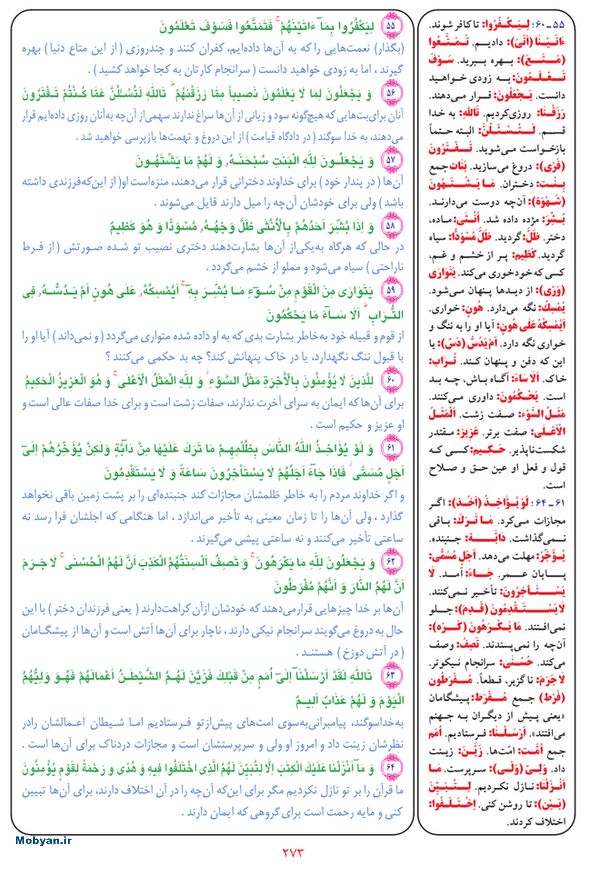 ۵۵ لِيَكْفُرُوا بِمَآ ءَاتَيْنٰهُمْ ۚ فَتَمَتَّعُوا فَسَوْفَ تَعْلَمُونَ
(بگذار) نعمت‌هایی را که به آن‌ها داده‌ایم، کفران کنند و چندروزی (از این متاع دنیا) بهره
گیرند ، اما به زودی خواهید دانست ( سرانجام کارتان به کجا خواهد کشید) .
۵۶ وَ يَجْعَلُونَ لِمَا لَا يَعْلَمُونَ نَصِيباً مِمَّا رَزَقْنٰهُمْ ۗ تَاللهِ لَتُسْئَلُنَّ عَمَّا كُنْتُمْ تَفْتَرُونَ
آنان برای‌بت‌هایی که هیچ‌گونه سود و زیانی از آن‌ها سراغ ندارند سهمی‌از آن‌چه به‌آنان روزی داده‌ایم قرار
می‌دهند، به خدا سوگند ( در دادگاه قیامت) از این دروغ و تهمت‌ها بازپرسی خواهید شد .
۵۷ وَ يَجْعَلُونَ لِلّٰهِ الْبَنٰتِ سُبْحٰنَهُ ۙ وَ لَهُمْ مَا يَشْتَهُونَ
آن‌ها ( در پندار خود ) برای خداوند دخترانی قرار می‌دهند، منزه‌است او( از این‌که‌فرزندی داشته
باشد) ولی برای خودشان آن‌چه را میل دارند قایل می‌شوند .
۵۸ وَ اِذا بُشِّرَ اَحَدُهُمْ بِالْاُنْثٰى ظَلَّ وَجْهُهُ مُسْوَدًّا وَ هُوَ كَظِيمٌ
در حالی که هرگاه به‌یکی‌از آن‌ها بشارت‌دهند دختری نصیب تو شده صورتش ( از فرط
ناراحتی ) سیاه می‌شود و مملو از خشم می‌گردد .
۵۹ يَتَوارٰى مِنَ الْقَوْمِ مِنْ سُوءِ مَا بُشِّرَ بِهِ ۚ اَيُمْسِكُهُ عَلٰى هُونٍ اَمْ يَدُسُّهُ فِى
التُّرابِ ۗ اَلَا سَآءَ مَا يَحْكُمُونَ
از قوم و قبیله خود به‌خاطر بشارت بدی که به او داده شده متواری می‌گردد ( و نمی‌داند) آیا او را
با قبول ننگ نگهدارد، یا در خاک پنهانش کند؟ چه بد حکمی می‌کنند ؟
۶۰ لِلَّذِينَ لَا يُؤْمِنُونَ بِالْاٰخِرَةِ مَثَلُ السَّوْءِ ۖ وَ لِلّٰهِ الْمَثَلُ الْاَعْلٰى ۚ وَ هُوَ الْعَزِيزُ الْحَكِيمُ
برای آن‌ها‌که ایمان به سرای آخرت ندارند، صفات زشت است و برای خدا صفات عالی است و
او عزیز و حکیم است .
۶۱ وَ لَوْ يُؤَاخِذُ اللهُ النَّاسَ بِظُلْمِهِمْ مَا تَرَكَ عَلَيْها مِنْ دَآبَّةٍ وَلٰكِنْ يُؤَخِّرُهُمْ اِلٰىٓ
اَجَلٍ مُسَمًّى ۖ فَاِذا جَآءَ اَجَلُهُمْ لَا يَسْتَأْخِرُونَ سَاعَةً وَ لَا يَسْتَقْدِمُونَ
و اگر خداوند مردم را به خاطر ظلمشان مجازات کند جنبنده‌ای را بر پشت زمین باقی نخواهد
گذارد ، ولی آن‌ها را تا زمان معینی به تأخیر می‌اندازد ، اما هنگامی که اجلشان فرا رسد نه
ساعتی تأخیر می‌کنند و نه ساعتی پیشی می‌گیرند .
۶۲ وَ يَجْعَلُونَ لِلّٰهِ مَا يَكْرَهُونَ ۚ وَ تَصِفُ اَلْسِنَتُهُمُ الْكَذِبَ اَنَّ لَهُمُ الْحُسْنٰى ۖ لَا جَرَمَ
اَنَّ لَهُمُ النَّارَ وَ اَنَّهُمْ مُفْرَطُونَ
آن‌ها بر خدا چیزهایی قرارمی‌دهند که خودشان ازآن کراهت‌دارند ( یعنی فرزندان دختر ) با این
حال به‌دروغ می‌گویند سرانجام نیکی دارند ، ناچار برای آن‌ها آتش است و آن‌ها از پیشگـامان
( در آتش دوزخ ) هستنـد .
۶۳ تَاللهِ لَقَدْ اَرْسَلْنَآ اِلٰىٓ اُمَمٍ مِنْ قَبْلِكَ فَزَيَّنَ لَهُمُ الشَّيْطٰنُ اَعْمالَهُمْ فَهُوَ وَلِيُّهُمُ
الْيَوْمَ وَ لَهُمْ عَذابٌ اَلِيمٌ
به‌خداسوگند، پیامبرانی‌به‌سوی امت‌های پیش‌ازتو فرستادیم اما شیطان اعمالشان رادر
نظرشان زینت داد و امروز او ولی و سرپرستشان است و مجازات دردناک برای آن‌ها است .
۶۴ وَ مَآ اَنْزَلْنَا عَلَيْكَ الْكِتٰبَ اِلَّا لِتُبَيِّنَ لَهُمُ الَّذِى اخْتَلَفُوا فِيهِ وَ هُدًى وَ رَحْمَةً لِقَوْمٍ يُؤْمِنُونَ
ما قرآن را بر تو نازل نکردیم مگر برای این‌که آن‌چه را در آن اختلاف دارند، برای آن‌ها تبیین
کنی و مایه رحمت است برای گروهی که ایمان دارند .
۵۵ ـ ۶۰: لِيَكْفُرُوا: تا کافر شوند.
ءَاتَيْنٰا (اَتَىَ): دادیم. تَمَتَّعُوا
(مَتَعَ): بهره ببرید. سَوْفَ
تَعْلَمُونَ: به زودی خواهید
دانست. يَجْعَلُونَ: قرار می‌دهند.
رَزَقْنٰا: روزی‌کردیم. تَاللهِ: به خدا
قسم. لَتُسْئَلُنَّ: البته حتماً
بازخواست می‌شوید. تَفْتَرُونَ
(فَرَىَ): دروغ می‌سازید. بَنٰات جمع
بِنْت: دختران. مَا يَشْتَهُونَ
(شَهْوَة): آن‌چه دوست می‌دارند.
بُشِّرَ: مژده داده شد. اُنْثٰى: ماده،
دختر. ظَلَّ: گردید. ظَلَّ مُسْوَدًّا: سیاه
گردید. كَظِيمٌ: پر از خشم و غم،
کسی که خودخوری می‌کند. يَتَوارٰى
(وَرَىَ): از دیدها پنهان می‌شود.
يُمْسِكُ: نگه می‌دارد. هُونٍ: خواری.
اَيُمْسِكُهُ عَلٰى هُونٍ: آیا او را به ننگ و
خواری نگه دارد. اَمْ يَدُسُّ (دَسَّ): یا
این که دفن و پنهان کند. تُراب:
خاک. اَلا سَآءَ: آگاه باش، چه بد
است. يَحْكُمُونَ: داوری می‌کنند.
مَثَلُ السَّوْءِ: صفت زشت. اَلْمَثَلُ
الْاَعْلٰى: صفت برتر. عَزِيزٌ: مقتدر
شکست‌ناپذیر. حَكِيمٌ: کسی که
قول و فعل او عین حق و صلاح
است.
۶۱ ـ ۶۴: لَوْ يُؤَاخِذُ (اَخَذَ): اگر
مجازات می‌کرد. مَا تَرَكَ: باقی
نمی‌گذاشت. دَآبَّة: جنبنده.
يُؤَخِّرُ: مهلت می‌دهد. اَجَلٍ مُسَمًّى:
پایان عمر. جَآءَ: آمد. لَا
يَسْتَأْخِرُونَ: تأخیر نمی‌کنند.
لَا يَسْتَقْدِمُونَ (قَدِمَ): جلو
نمی‌افتند. مَا يَكْرَهُونَ (كَرِهَ):
آن‌چه را نمی‌پسندند. تَصِفُ: وصف
می‌کند. حُسْنٰى: سرانجام نیکوتر.
لَا جَرَمَ: ناگزیر، قطعاً. مُفْرَطُونَ
(فَرَطَ) جمع مُفْرَط: پیشگامان
«یعنی پیش از دیگران به جهنم
می‌افتند». اَرْسَلْنٰا: فرستادیم. اُمَمٍ
جمع اُمَّت: امّت‌ها. زَيَّنَ: زینت
داد. وَلِىّ (وَلِىَ): سرپرست. مَا
اَنْزَلْنٰا: نازل نکردیم. لِتُبَيِّنَ
(بَيَّنَ): تا روشن کنی. اِخْتَلَفُوا:
اختلاف کردند.
Mobyan.ir
۲۷۳